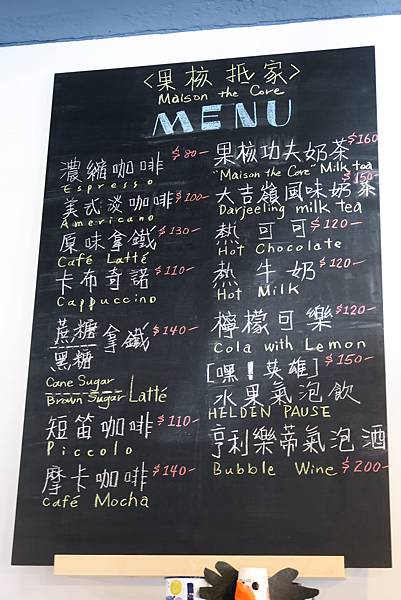 <果核抵家>
Maison the Core
MENU
濃縮咖啡 $80-
Espresso
美式淡咖啡 $100-
Americano
原味拿鐵 $130-
Café Latté
卡布奇諾 $110-
Cappuccino
蔗糖 拿鐵 $140-
黑糖
Cane Sugar
Brown Sugar Latté
短笛咖啡 $110-
Piccolo
摩卡咖啡 $140-
Café Mocha
果核功夫奶茶 $160
"Maison the Core" Milk tea
大吉嶺風味奶茶 $150-
Darjeeling milk tea
熱可可 $120-
Hot Chocolate
熱牛奶 $120-
Hot Milk
檸檬可樂 $120-
Cola with Lemon
[嘿!英雄] $150-
水果氣泡飲
HELDEN PAUSE
亨利樂蒂氣泡酒
Bubble Wine $200-